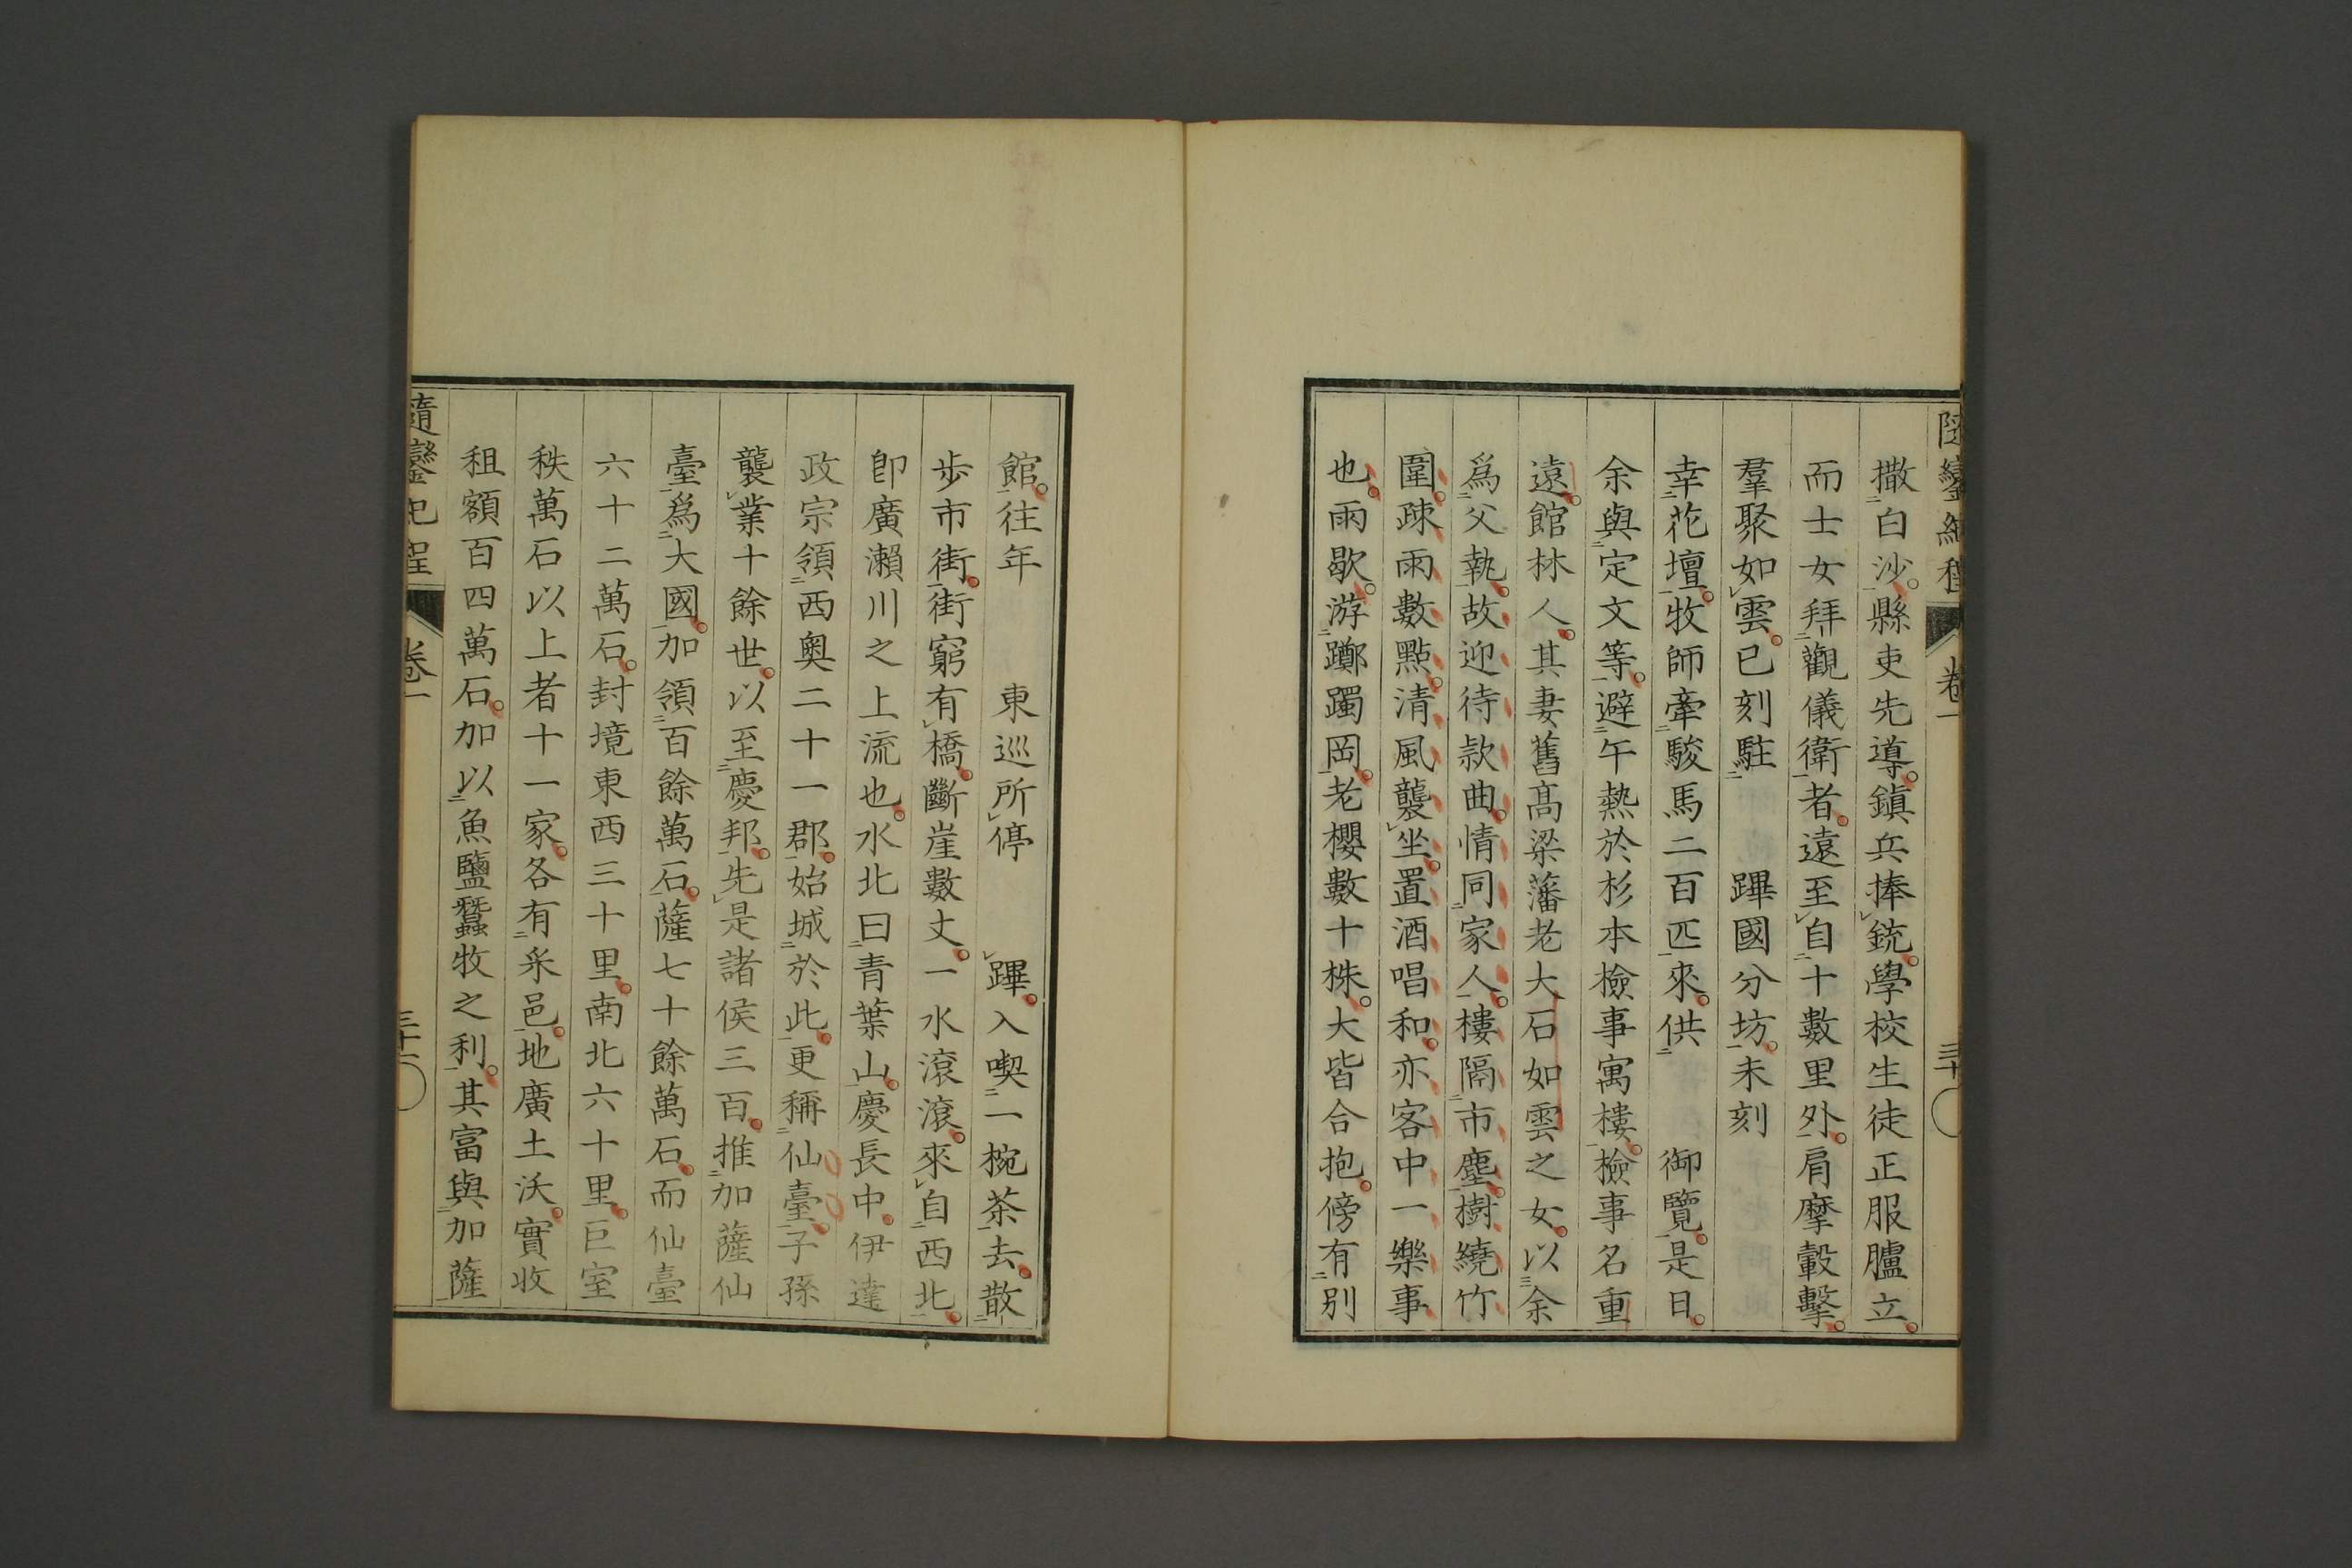 隨鑾紀程 卷一 三十
撒白沙。縣吏先導。鎮兵捧銃。學校生徒正服臚立。
而士女拜觀儀衛者。遠至自十數里外。肩摩轂擊。
羣聚如雲。巳刻駐 蹕國分坊。未刻
幸花壇。牧師牽駿馬二百匹來。供 御覽。是日。
余與定文等。避午熱於杉本檢事寓樓。檢事名重
遠。館林人。其妻舊高梁藩老大石如雲之女。以余
爲父執。故迎待款曲。情同家人。樓隔市塵。樹繞竹
圍。疎雨數點。清風襲坐。置酒唱和。亦客中一樂事
也。雨歇。游躑躅岡。老櫻數十株。大皆合抱。傍有別
館。往年 東巡所停 蹕。入喫一椀茶去。散
歩市街。街窮有橋。斷崖數丈。一水滾滾。來自西北。
卽廣瀨川之上流也。水北曰青葉山。慶長中。伊達
政宗領西奧二十一郡。始城於此。更稱仙臺。子孫
襲業十餘世。以至慶邦。先是諸侯三百。推加薩仙
臺爲大國。加領百餘萬石。薩七十餘萬石。而仙臺
六十二萬石。封境東西三十里。南北六十里。巨室
秩萬石以上者十一家。各有釆邑。地廣土沃。實收
租額百四萬石。加以魚鹽蠶牧之利。其富與加薩
隨鑾紀程 卷一 三十一